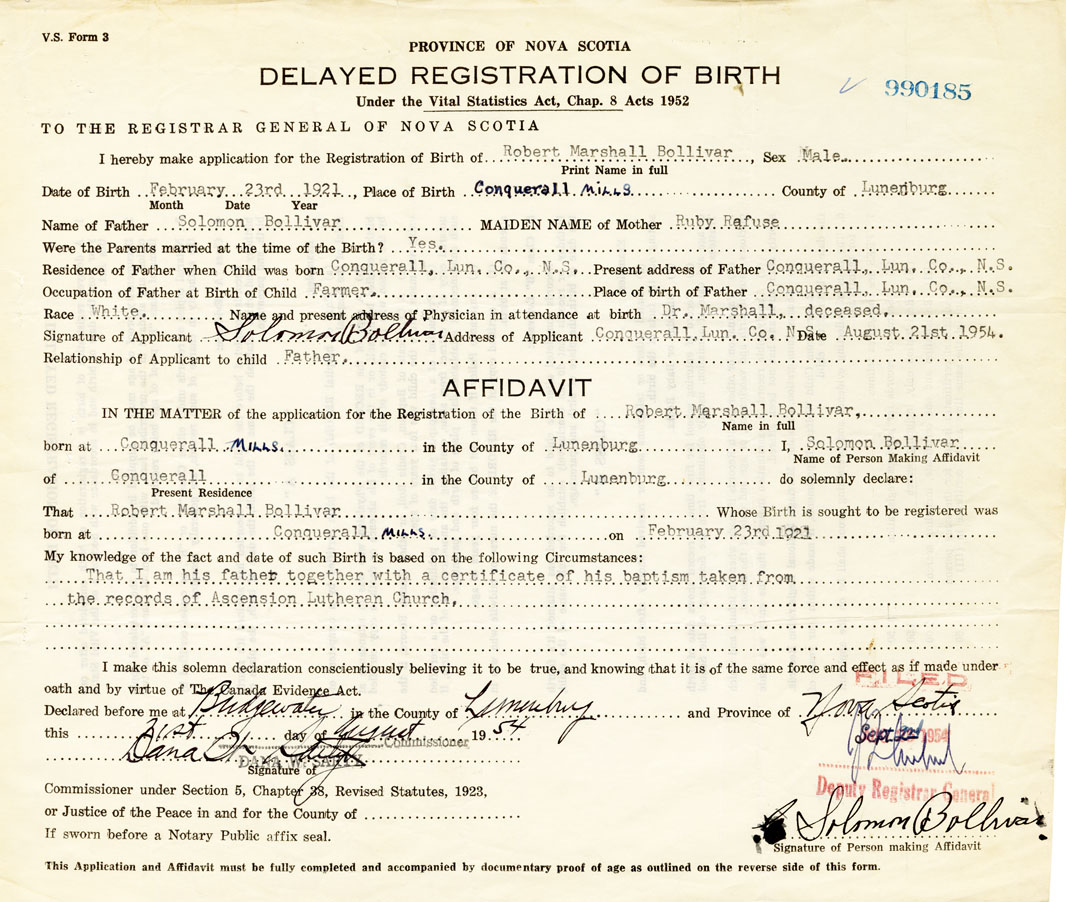 V.S. Form 3
PROVINCE OF NOVA SCOTIA
DELAYED REGISTRATION OF BIRTH
990185
Under the Vital Statistics Act, Chap. 8 Acts 1952
TO THE REGISTRAR GENERAL OF NOVA SCOTIA
I hereby make application for the Registration of Birth of Robert Marshall Bollivar, Sex Male.
Print Name in full
Date of Birth February 23rd 1921, Place of Birth Conquerall Mills. County of Lunenburg
Month Date Year
Name of Father Solomon Bollivar MAIDEN NAME of Mother Ruby Rafuse
Were the Parents married at the time of the Birth? Yes.
Residence of Father when Child was born Conquerall, Lun. Co., N.S. Present address of Father Conquerall, Lun. Co., N.S.
Occupation of Father at Birth of Child Farmer. Place of birth of Father Conquerall, Lun. Co., N.S.
Race White. Name and present address of Physician in attendance at birth Dr. Marshall, deceased.
Signature of Applicant Solomon Bollivar Address of Applicant Conquerall Lun. Co. N.S. Date August 21st 1954.
Relationship of Applicant to child Father.
AFFIDAVIT
IN THE MATTER of the application for the Registration of the Birth of Robert Marshall Bollivar,
Name in full
born at Conquerall Mills. in the County of Lunenburg I, Solomon Bollivar
Name of Person Making Affidavit
of Conquerall in the County of Lunenburg do solemnly declare:
Present Residence
That Robert Marshall Bollivar Whose Birth is sought to be registered was
born at Conquerall Mills. on February 23rd 1921
My knowledge of the fact and date of such Birth is based on the following Circumstances:
That I am his father together with a certificate of his baptism taken from
the records of Ascension Lutheran Church.
I make this solemn declaration conscientiously believing it to be true, and knowing that it is of the same force and effect as if made under
oath and by virtue of The Canada Evidence Act.
FILED
Declared before me at Bridgewater in the County of Lunenburg and Province of Nova Scotia
this 21st day of August 1954
Sept 1954
Dana W.
Commissioner
DANA W.
Signature of
Deputy Registrar General
Commissioner under Section 5, Chapter 38, Revised Statutes, 1923,
or Justice of the Peace in and for the County of
Solomon Bollivar
If sworn before a Notary Public affix seal.
Signature of Person making Affidavit
This Application and Affidavit must be fully completed and accompanied by documentary proof of age as outlined on the reverse side of this form.